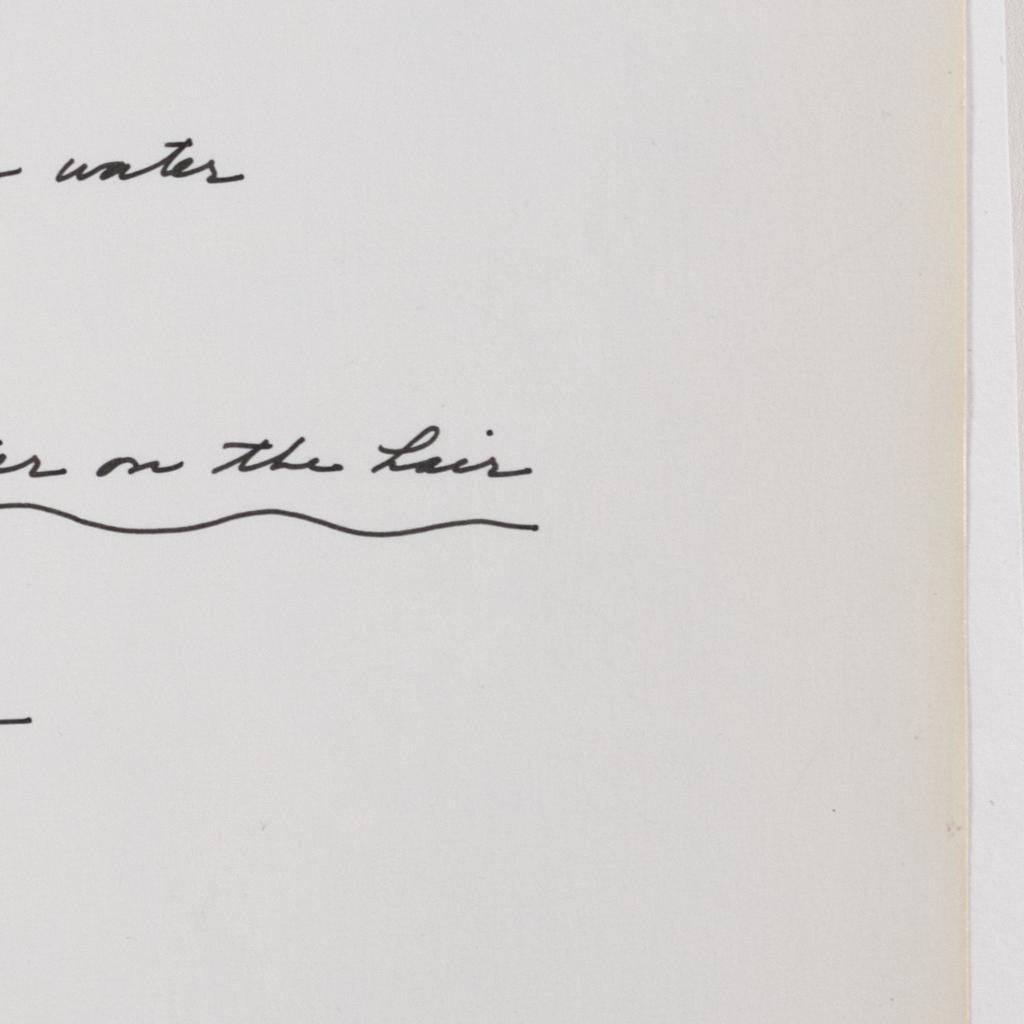 water
on the hair